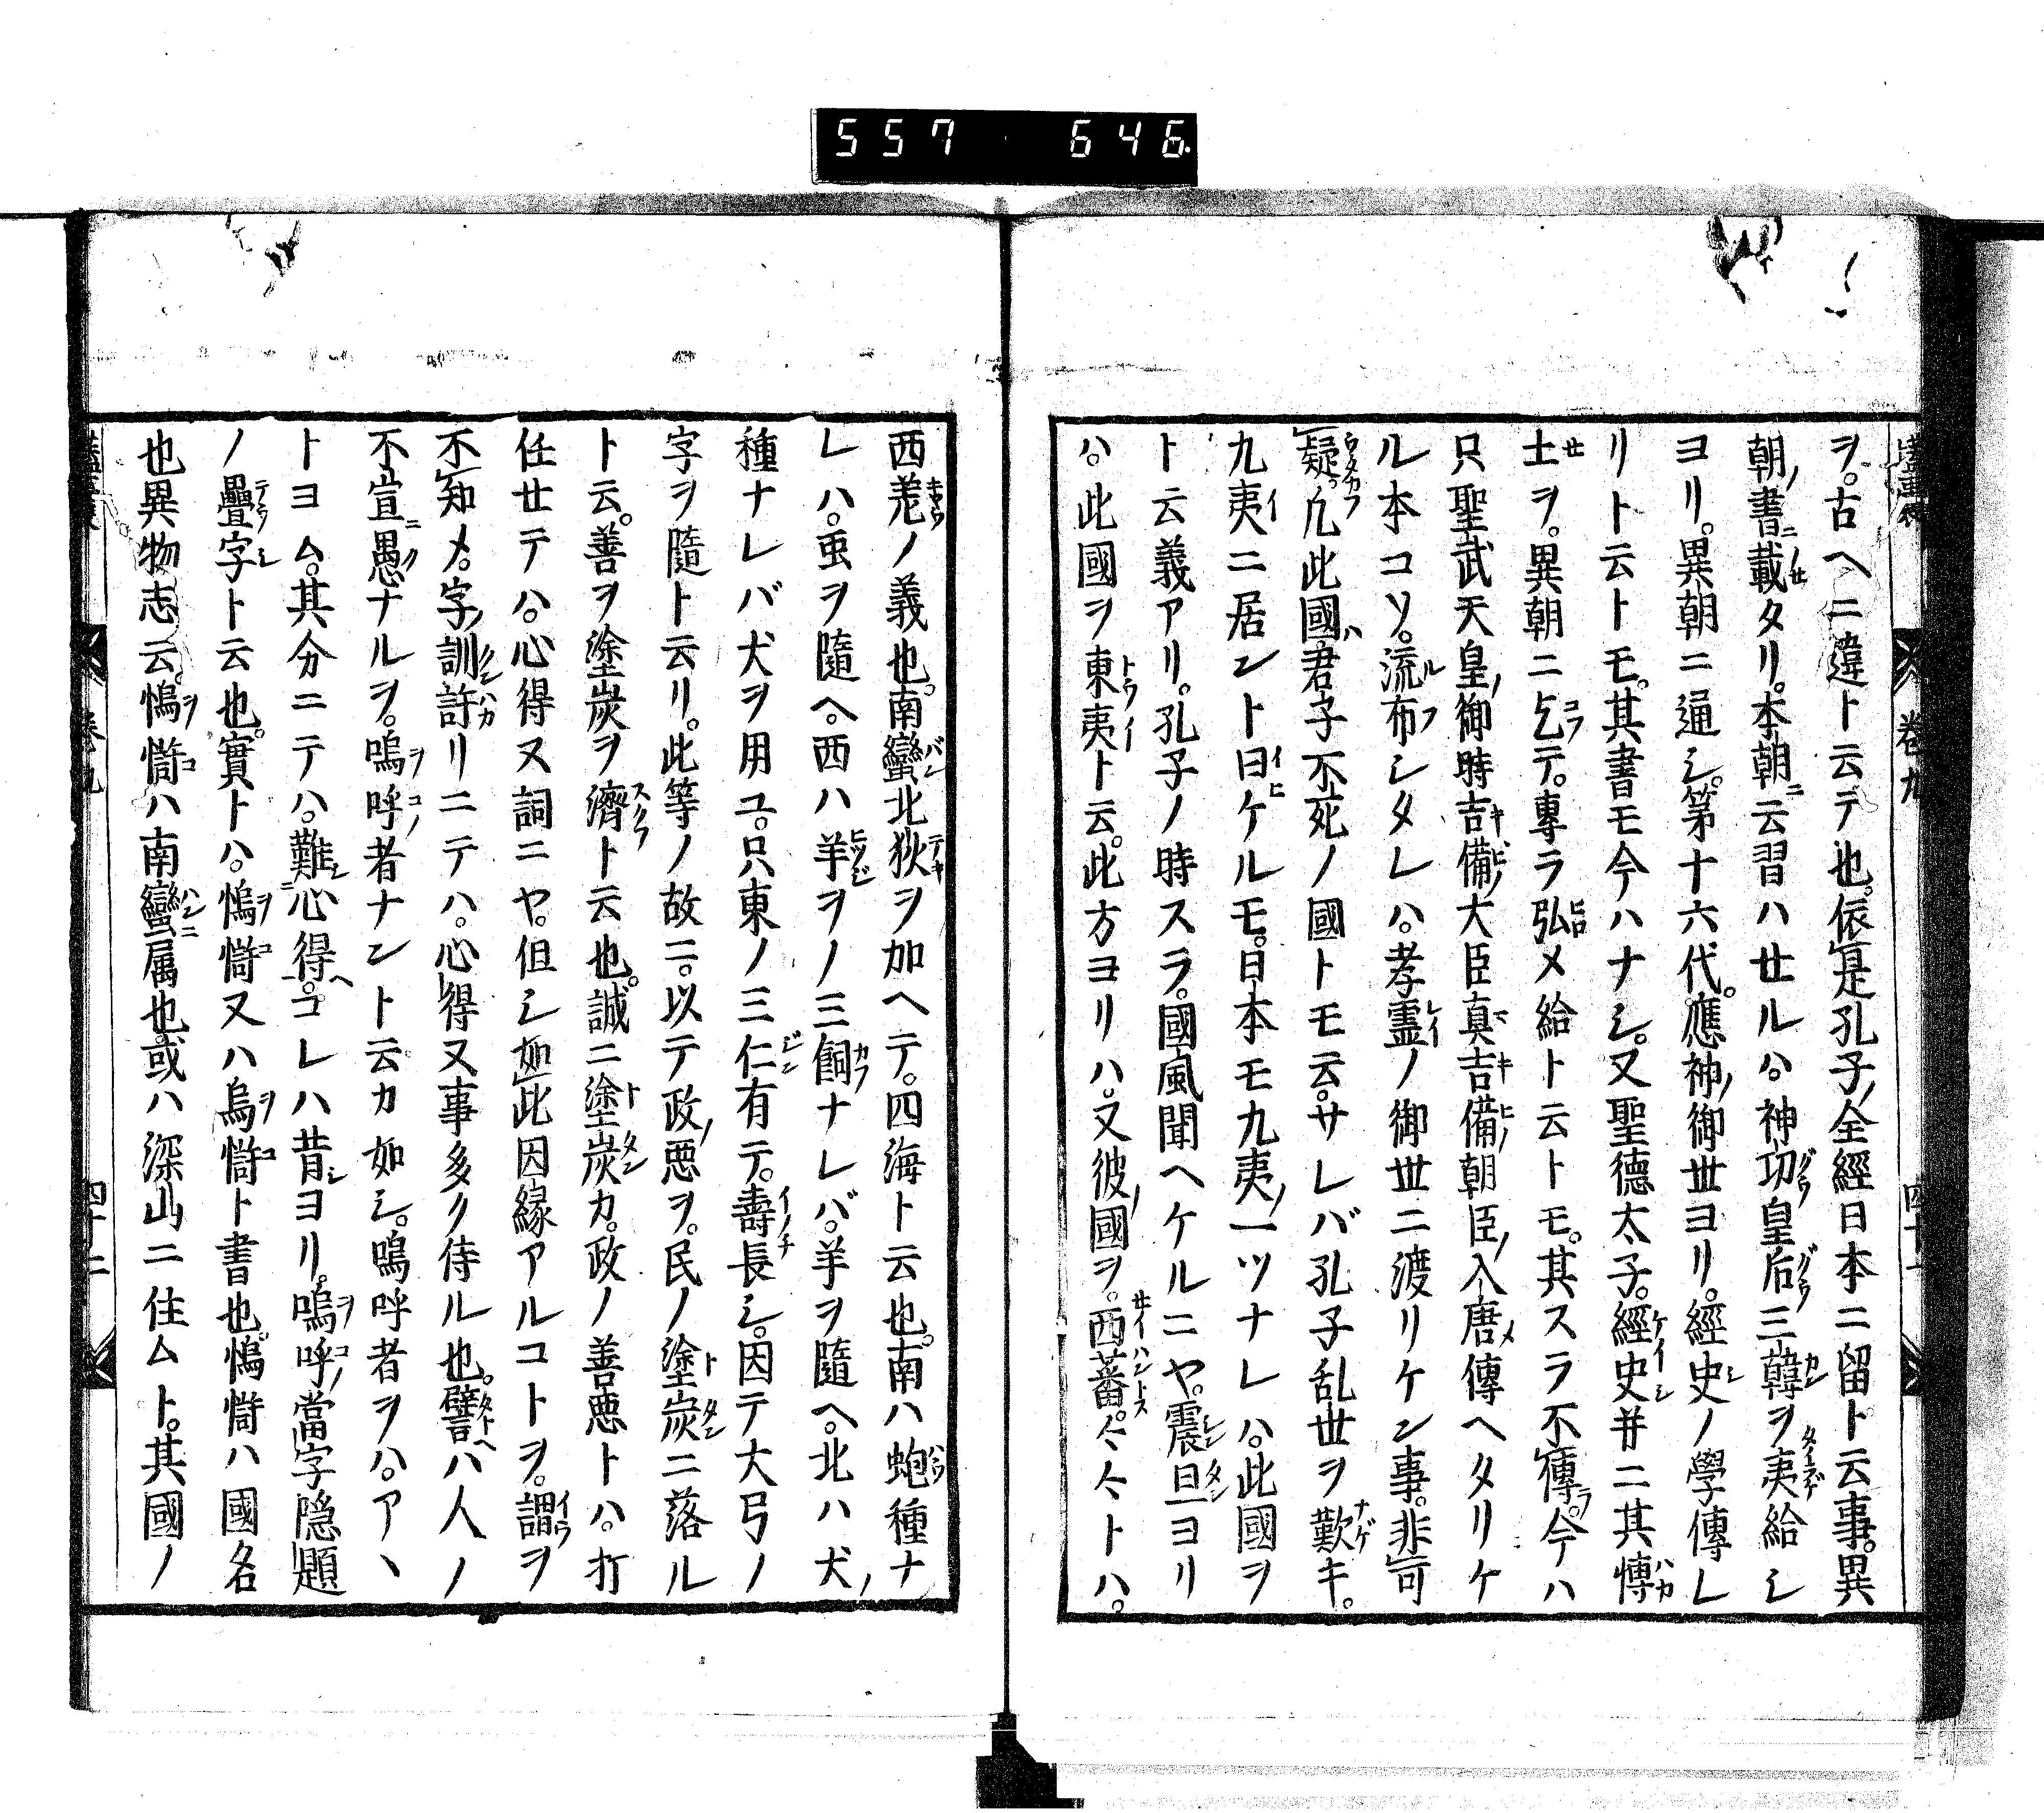 557 646
ヲ。古ヘニ違ト云デ也。依是孔子ノ全經日本ニ留ト云事。異
朝ノ書ニ載タリ。本朝ニ云習ハせルハ。神功皇后三韓ヲ夷給シ
ヨリ。異朝ニ通シ。第十六代。應神ノ御世ヨリ。經史ノ學傳レ
リト云トモ。其書モ今ハナシ。又聖德太子。經史并ニ其愽
士ヲ。異朝ニ乞テ。專ラ弘メ給ト云トモ。其スラ不傳。今ハ
只聖武天皇ノ御時吉備ノ大臣真吉備ノ朝臣ノ入唐傳ヘタリケ
ル本コソ。流布シタレハ。孝霊ノ御世ニ渡リケン事。非可
疑。凡此國ハ君子不死ノ國トモ云。サレバ孔子乱世ヲ歎キ。
九夷ニ居ント曰ケルモ。日本モ九夷ノ一ツナレハ。此國ヲ
ト云義アリ。孔子ノ時スラ。國風聞ヘケルニヤ。震旦ヨリ
ハ。此國ヲ東夷ト云。此方ヨリハ。又彼ノ國ヲ。西蕃。々々トハ。
卷九
西羗ノ義也。南蠻北狄ヲ加ヘテ。四海ト云也。南ハ蚫種ナ
レハ。虫ヲ隨ヘ。西ハ羊ヲノ三飼ナレバ。羊ヲ隨ヘ。北ハ犬ノ
種ナレバ犬ヲ用ユ。只東ノ三仁有テ。壽長シ。因テ大弓ノ
字ヲ隨ト云リ。此等ノ故ニ。以テ政ノ悪ヲ。民ノ塗炭ニ落ル
ト云。善ヲ塗炭ヲ濟ト云也。誠ニ塗炭カ。政ノ善悪トハ。打
任せテハ。心得又詞ニヤ。但シ如此因縁アルコトヲ。謂ヲ
不知メ。字ノ訓許リニテハ。心得又事多ク侍ル也。譬ヘハ人ノ
不宣愚ナルヲ。嗚呼ノ者ナント云カ如シ。嗚呼者ヲハ。アヽ
トヨム。其分ニテハ。難心得。コレハ昔ヨリ。嗚呼ノ當字隠題
ノ疊字ト云也。實トハ。㷖㦎又ハ烏㦎ト書也。㷖㦎ハ國名
也異物志云。㷖㦎ハ南蠻属也。或ハ深山ニ住ムト。其國ノ
四十二